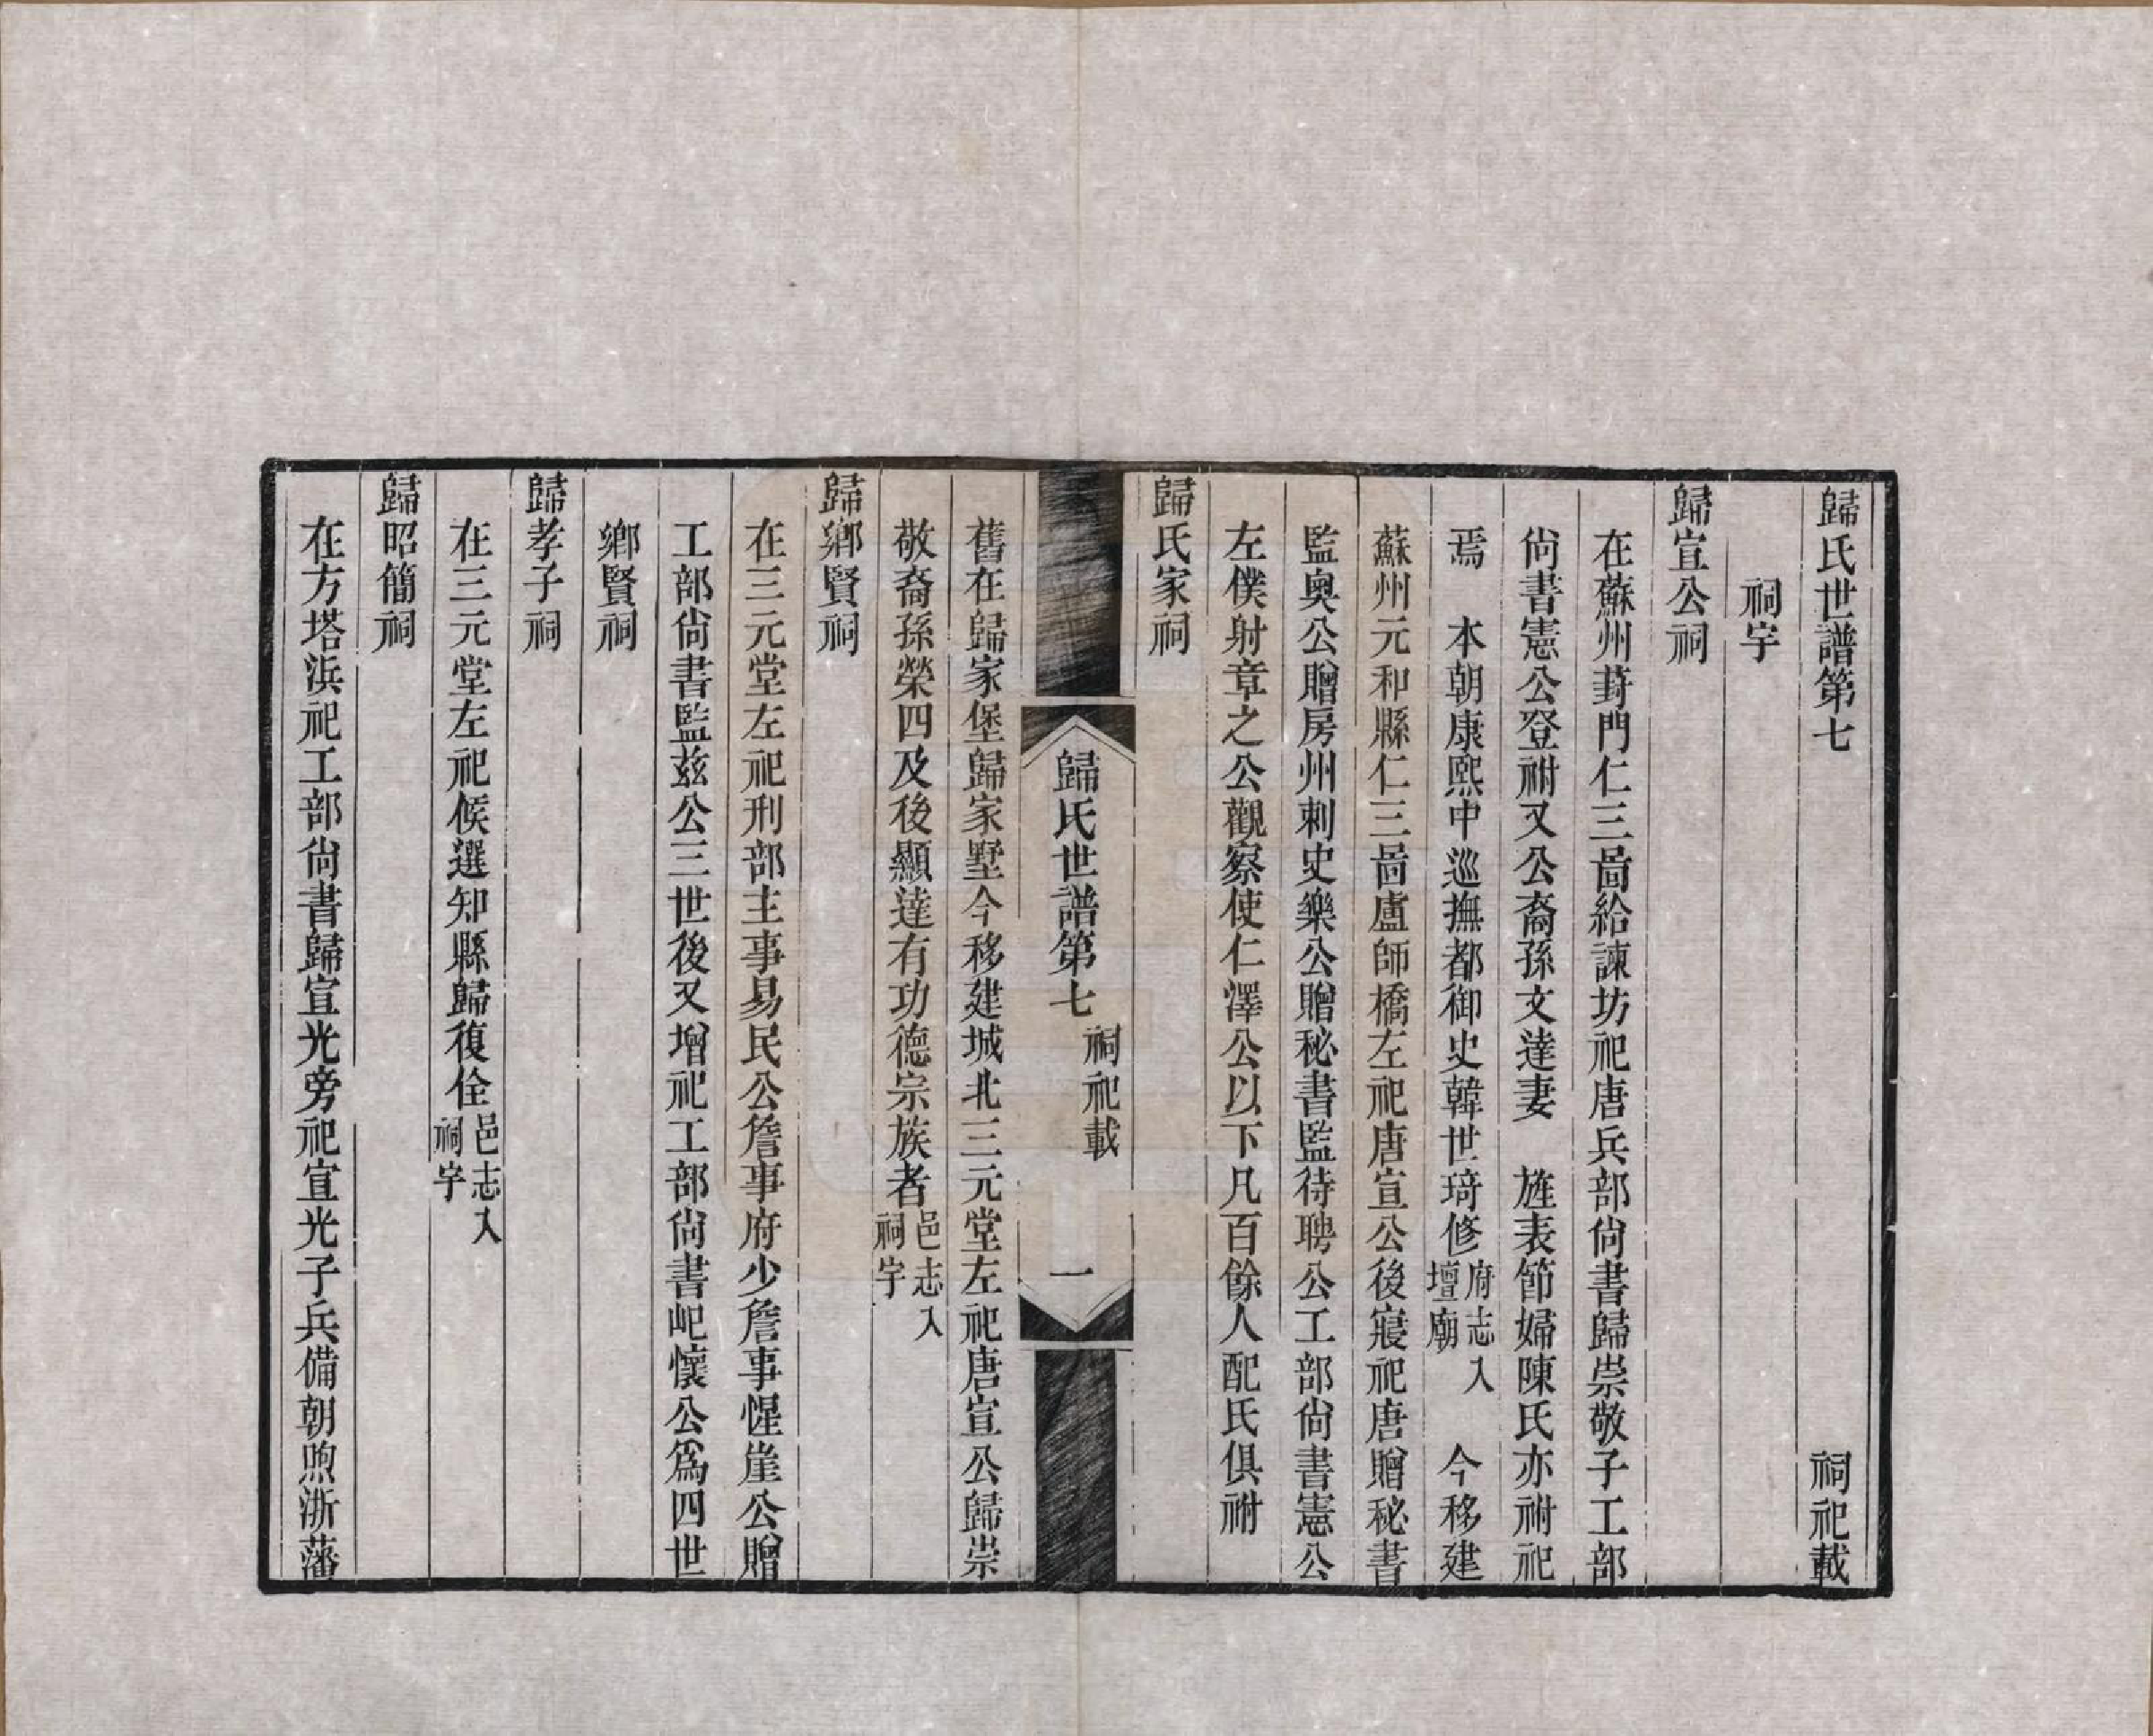 歸氏世譜第七 祠祀載
祠宇
歸宣公祠
在蘇州葑門仁三啚給諫坊祀唐兵部尙書歸崇敬子工部
尙書憲公登祔又公裔孫文達妻 旌表節婦陳氏亦祔祀
焉 本朝康熙中巡撫都御史韓世琦修府志入壇廟 今移建
蘇州元和縣仁三啚盧師橋左祀唐宣公後寢祀唐贈秘書
監奥公贈房州刺史樂公贈秘書監待聘公工部尙書憲公
左僕射章之公觀察使仁澤公以下凡百餘人配氏俱祔
歸氏家祠
歸氏世譜第七 祠祀載 一
舊在歸家堡歸家墅今移建城北三元堂左祀唐宣公歸崇
敬裔孫榮四及後顯達有功德宗族者邑志入祠宇
歸鄉賢祠
在三元堂左祀刑部主事易民公詹事府少詹事惺崖公贈
工部尙書監兹公三世後又增祀工部尙書屺懷公爲四世
鄉賢祠
歸孝子祠
在三元堂左祀候選知縣歸復佺邑志入祠宇
歸昭簡祠
在方塔浜祀工部尙書歸宣光旁祀宣光子兵備朝煦浙藩